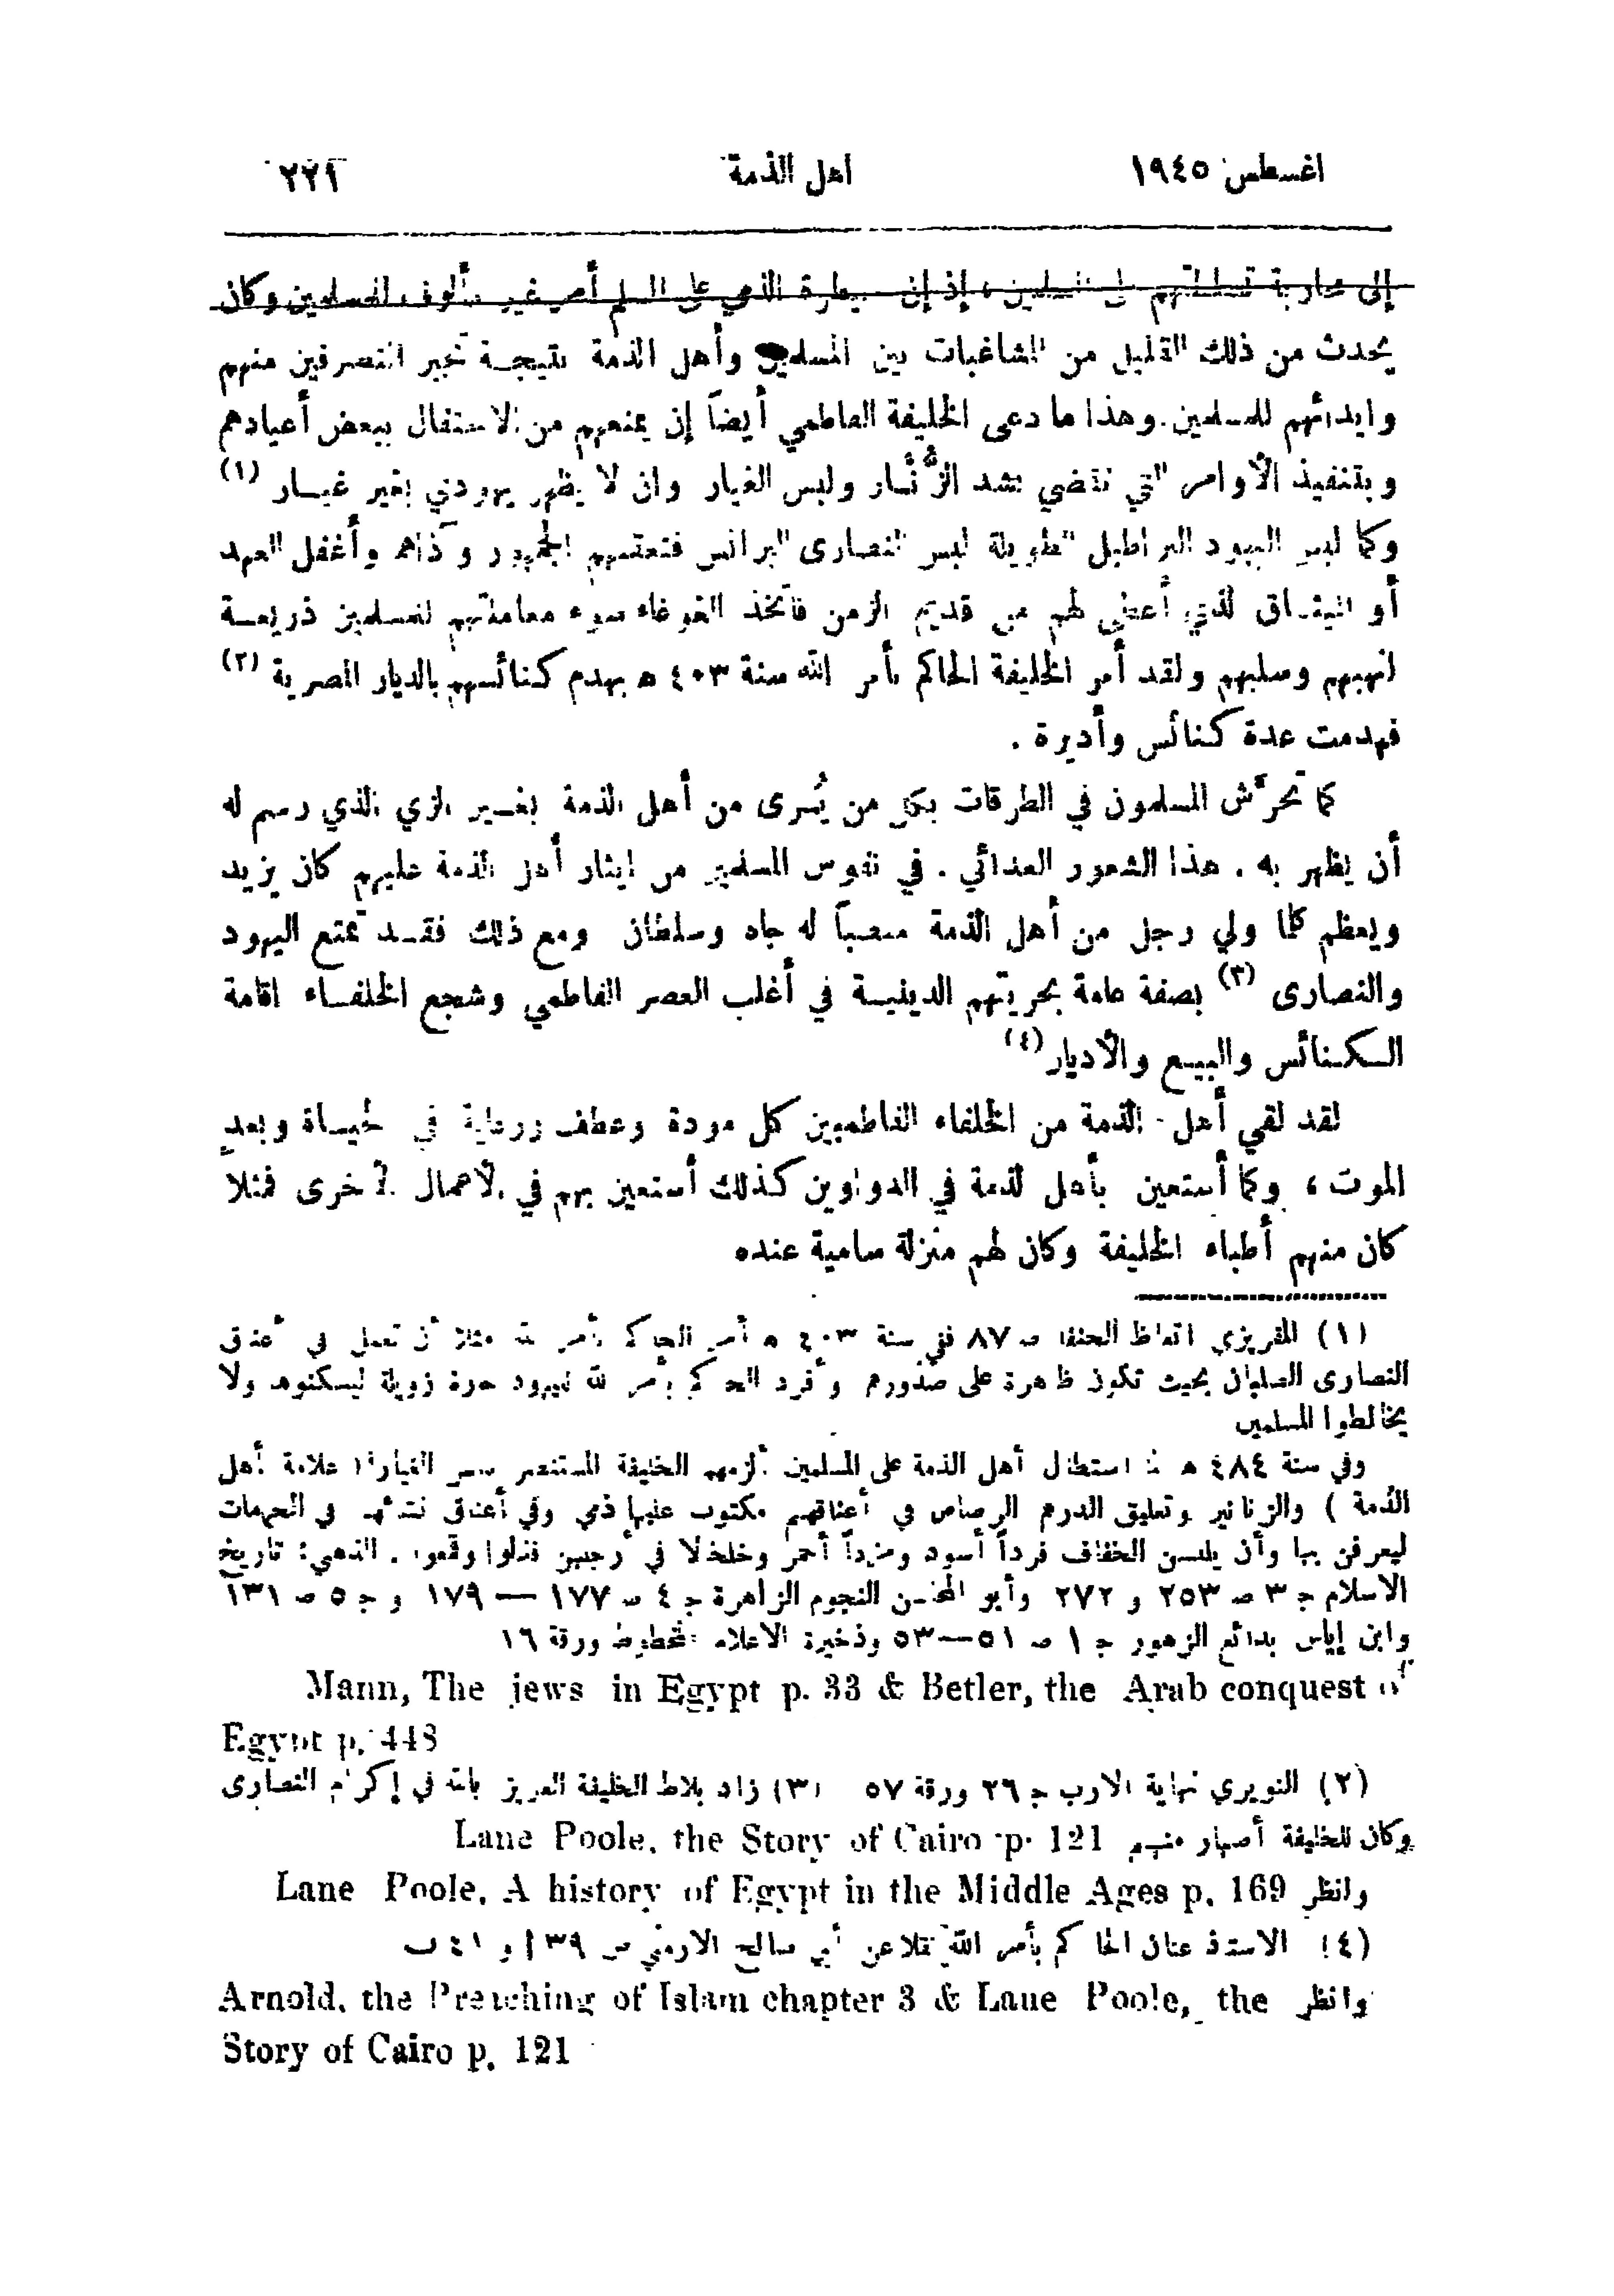 اغسطس ١٩٤٥ اهل الذمة ٢٢١
إلى محاربة تسلطهم على المسلمين، إذ إن سيطرة الذمي على المسلم أمر غير مألوف للمسلمين وكان
يحدث من ذلك القليل من المشاغبات بين المسلمين وأهل الذمة نتيجة تجبر المتصرفين منهم
وايذائهم للمسلمين. وهذا ما دعى الخليفة الفاطمي أيضاً إن يمنعهم من الاحتفال ببعض أعيادهم
وبتنفيذ الأوامر التي تقضي بشد الزُّنَّار ولبس الغيار وان لا يظهر يهودي بغير غيار (١)
وكما لبس اليهود البراطيل الطويلة لبس النصارى البرانس فتعقبهم الجمهور وآذاهم وأغفل العهد
أو الميثاق الذي أعطى لهم من قديم الزمن فاتخذ الغوغاء سوء معاملتهم للمسلمين ذريعة
لنهبهم وسلبهم ولقد أمر الخليفة الحاكم بأمر الله سنة ٤٠٣ ه بهدم كنائسهم بالديار المصرية (٢)
فهدمت عدة كنائس وأديرة .
كما تحرَّش المسلمون في الطرقات بكل من يُسرى من أهل الذمة بغير الزي الذي رسم له
أن يظهر به . هذا الشعور العدائي . في نفوس المسلمين من ايثار أهل الذمة عليهم كان يزيد
ويعظم كلما ولي رجل من أهل الذمة منصباً له جاه وسلطان ومع ذلك فقد تمتع اليهود
والنصارى (٣) بصفة عامة بحريتهم الدينية في أغلب العصر الفاطمي وشجع الخلفاء اقامة
الكنائس والبيع والأديار (٤)
لقد لقي أهل الذمة من الخلفاء الفاطميين كل مودة وعطف ورعاية في الحياة وبعد
الموت ، وكما أستعين بأهل الذمة في الدواوين كذلك أستعين بهم في الأعمال الأخرى فمثلا
كان منهم أطباء الخليفة وكان لهم منزلة سامية عنده
(١) المقريزي اتعاظ الحنفا ص ٨٧ ففي سنة ٤٠٣ ه أمر الحاكم بأمر الله مثلا أن تعمل في أعناق
النصارى الصلبان بحيث تكون ظاهرة على صدورهم وأفرد الحاكم بأمر الله لليهود حارة زويلة ليسكنوها ولا
يخالطوا المسلمين
وفي سنة ٤٨٤ ه لما استطال أهل الذمة على المسلمين ألزمهم الخليفة المستنصر بلبس الغيار (علامة أهل
الذمة) والزنانير وتعليق الدرهم الرصاص في أعناقهم مكتوب عليها ذمي وفي أعناق نسائهم في الحمامات
ليعرفن بها وأن يلبسن الخفاف فرداً أسود وفرداً أحمر وخلخلا في أرجلهن فذلوا وقمعوا . الذهبي: تاريخ
الاسلام ج ٣ ص ٢٥٣ و ٢٧٢ وأبو المحاسن النجوم الزاهرة ج ٤ ص ١٧٧ — ١٧٩ و ج ٥ ص ١٣١
وابن إياس بدائع الزهور ج ١ ص ٥١—٥٣ وذخيرة الاعلام مخطوط ورقة ١٦
Mann, The jews in Egypt p. 33 & Betler, the Arab conquest of
Egypt p. 448
(٢) النويري نهاية الارب ج ٢٦ ورقة ٥٧ (٣) زاد بلاط الخليفة العزيز بالله في إكرام النصارى
وكان للخليفة أصهار منهم Lane Poole, the Story of Cairo p. 121
وانظر Lane Poole, A history of Egypt in the Middle Ages p. 169
(٤) الاستاذ عنان الحاكم بأمر الله نقلا عن أبي صالح الارمني ص ٣٩ أ و ٤١ ب
وانظر Arnold, the Preaching of Islam chapter 3 & Lane Poole, the
Story of Cairo p. 121